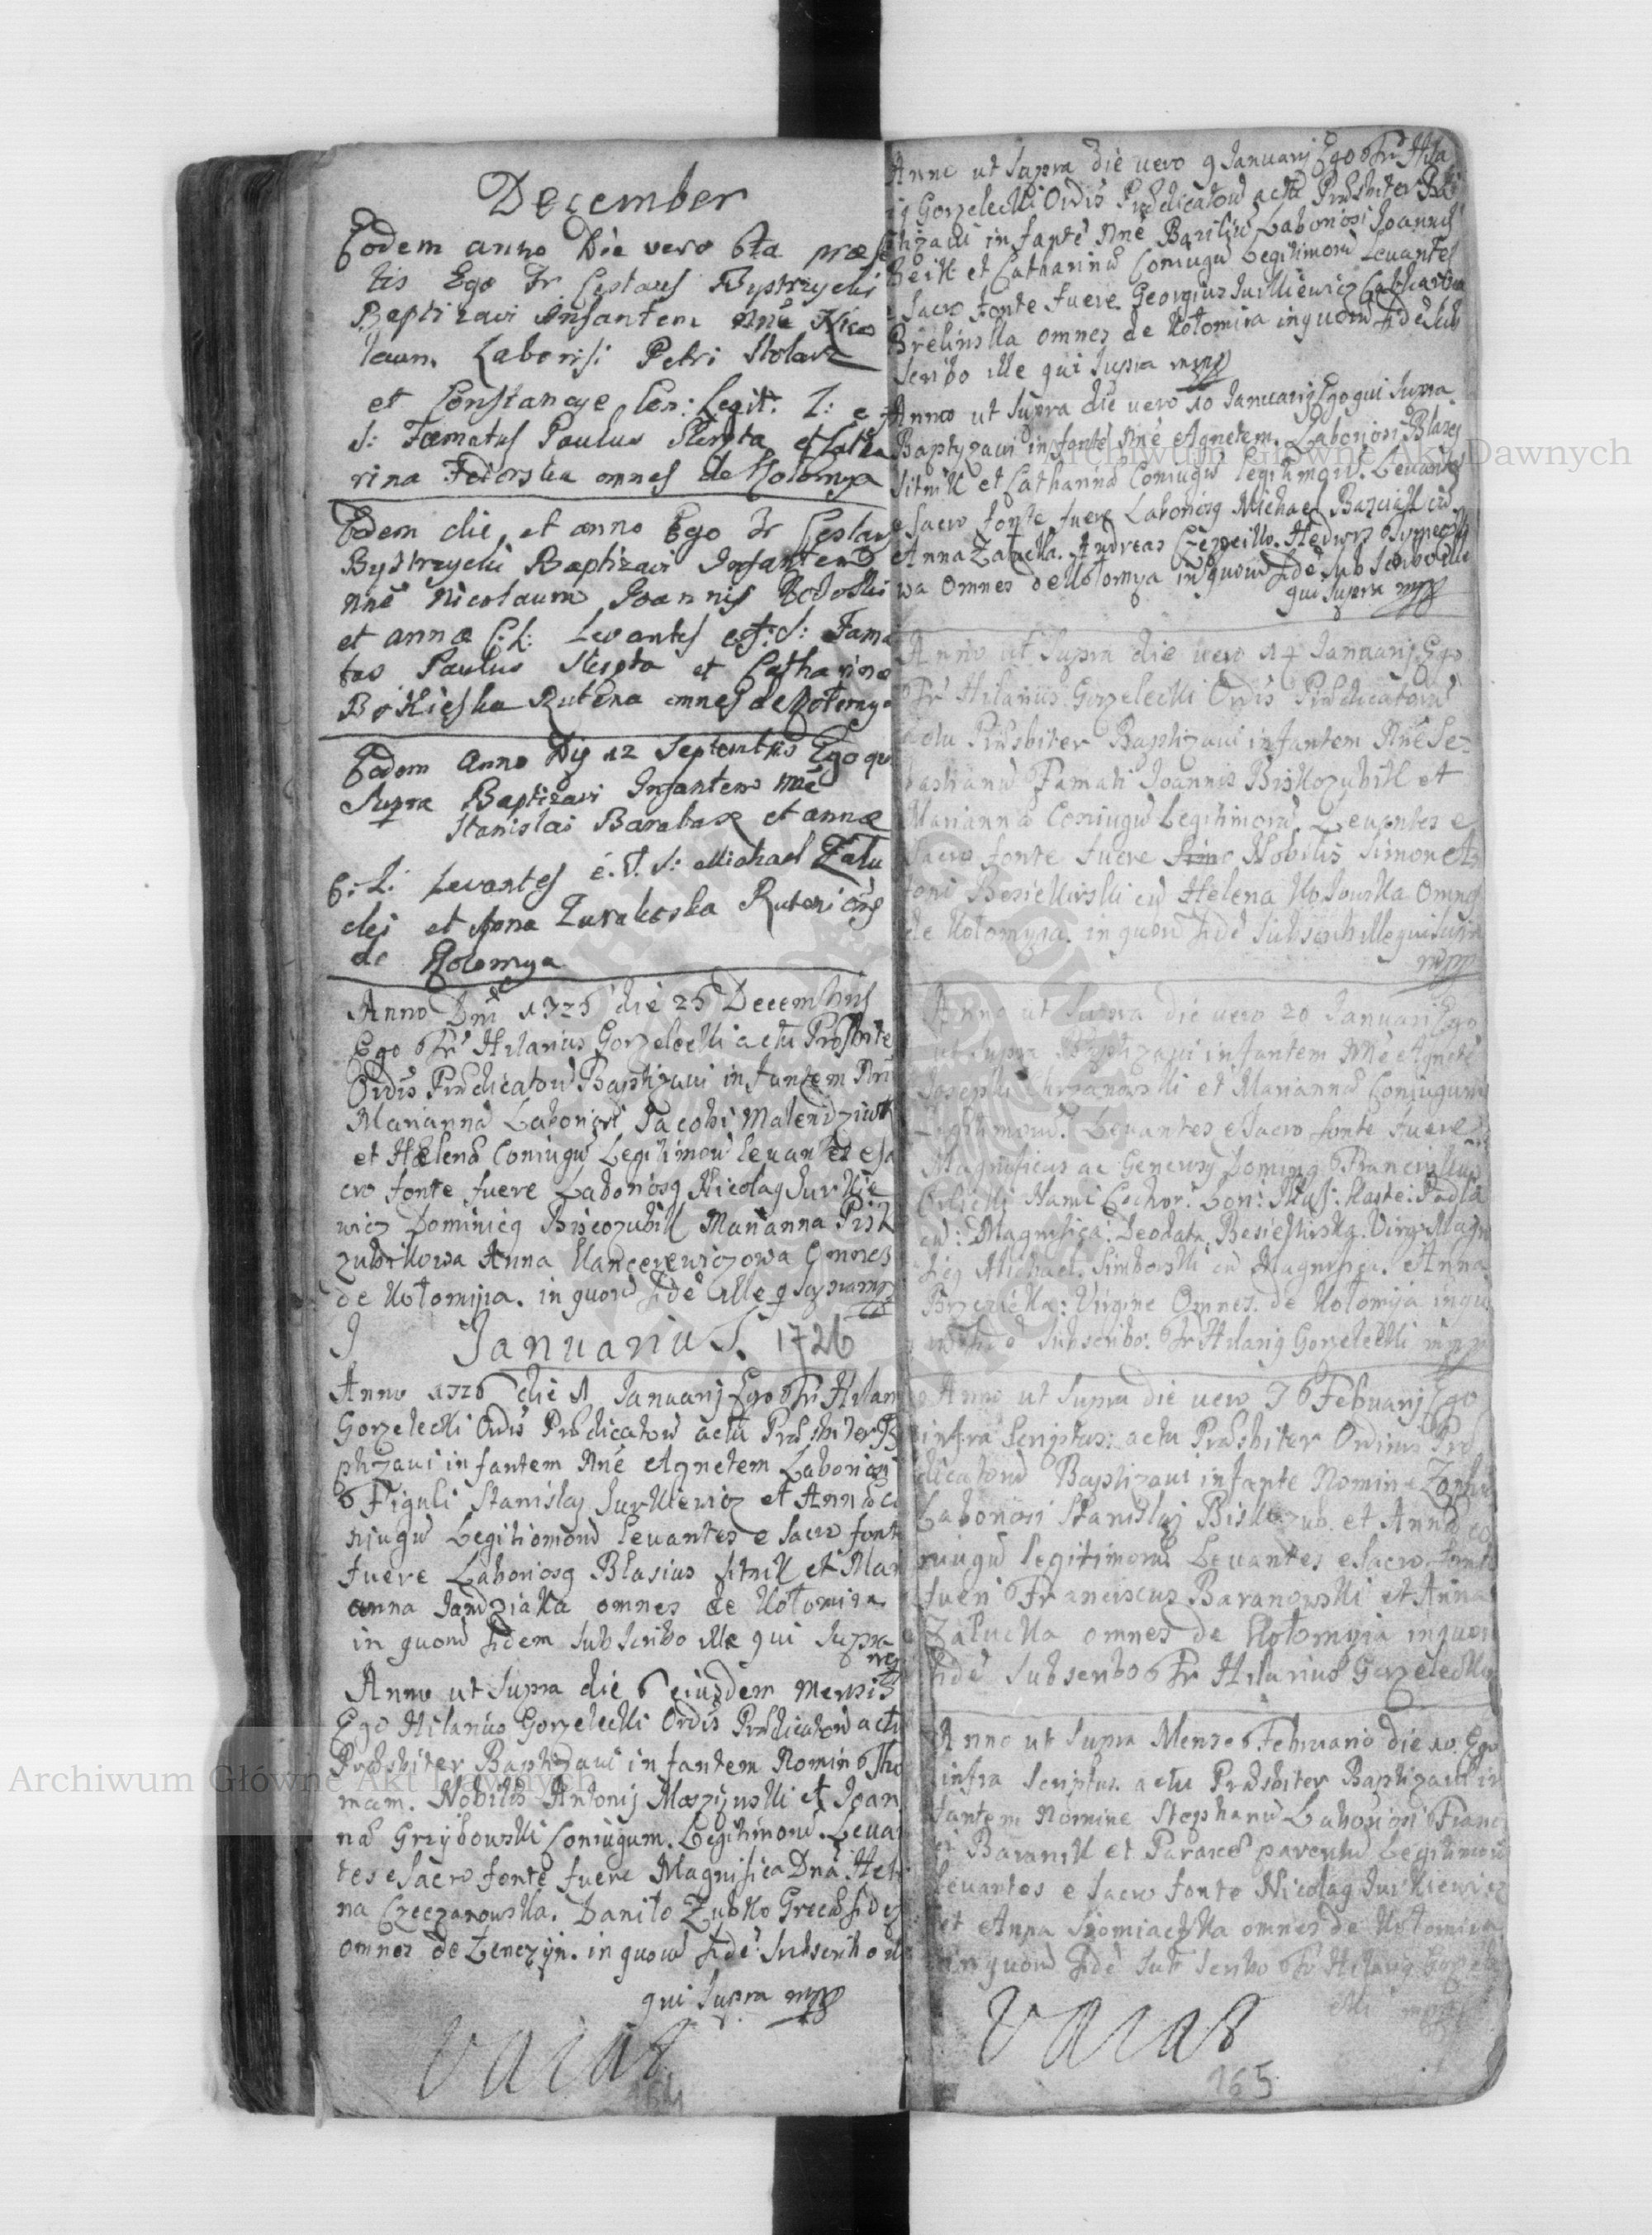 December
Eodem anno Die vero 6ta præsen
tis Ego Fr Ceslaus Bystrzycki
Baptizavi infantem nñe Nico
laum Laboriosi Petri Stolarz
et Constanciæ Con: Legit: L: e f
S: Famatus Paulus Sterpta et Catha
rina Fedorska omnes de Kolomya
Eodem die et anno Ego Fr Ceslaus
Bystrzycki Baptizavi Infantem
nñe Nicolaum Joannis
et annæ C: L: Levantes e f: S: Fama
tus Paulus Sterpta et Catharina
Rutena omnes de Kolomya
Eodem Anno Die 12 Septembris Ego qui
Supra Baptizavi Infantem nñe
Stanislai Barabasz et annæ
C: L: Levantes e: f: S: Michael Zalu
cki et Anna Zurakoska Ruteni omes
de Kolomya
Anno Dni 1725 die 25 Decembris
Ego Fr Hilarius Gorzelecki actu Præsbite
Ordis Prædicatorũ Baptizavi infantem Nñe
Mariannã Laboriosi Jacobi
et Helenæ Coniugũ Legitimorũ levantes e sa
cro fonte fuere Laboriosq Nicolaq Jurkie
wicz Dominicq Biscozubik Marianna Pisk
zubikowa Anna Kancerewiczowa Omnes
de Kołomyia. in quorũ fidẽ ille q supra mp
Januarius. 1726
Anno 1726 die 1 Januarij Ego Fr Hilari
Gorzelecki Ordis Prædicatorũ actu Præsbiter Ba
ptizavi infantem Nñe Agnetem Laboriosi
Figuli Stanislaj Jurkiewicz et Annæ Co
niugũ Legitiomorũ levantes e sacro fonte
fuere Laboriosq Blasius Sitnik et Mari
anna Jandziaka omnes de Kołomiia
in quorũ fidem subscribo ille qui supra
mp
Anno ut supra die 6 eiusdem mensis
Ego Hilarius Gorzelecki Ordis Prædicatorũ actu
Præsbiter Baptizavi infantem Nomin Tho
mam. Nobilis Antonij et Joan
næ Grzybowski Coniugum Legitimorũ. Levan
tes e sacro fonte fuere Magnifica Dna Hele
na Czeczanowska. Danilo Zubko Græcæ fidei
omnes de in quorũ fidẽ subscribo ille
qui supra mpp
vacat
164
Anno ut supra die vero 9 Januarij Ego Fr Hila
iq Gorzelecki Ordis Prædicatorũ actu Præsbiter Ba
tizavi infantẽ Nñe Baziliũ Laboriosi Joannis
et Catharinæ Coniugũ Legitimorũ Levantes
e Sacro fonte fuere Georgius Jurkiewicz Catharina
Brelinska omnes de Kołomiia in quorũ fidẽ sub
scribo ille qui supra mpp
Anno ut supra die vero 10 Januarij Ego qui supra
Baptyzavi infantẽ Nñe Agnetem. Laboriosi Blazej
Sitnik et Catharinæ Coniugũ legitimorũ. Levantes
e Sacro fonte fuere Laboriosq Michael cũ
Anna Załucka. Andreas
wa Omnes de Kołomyia in quorũ fidẽ sub scribo ille
qui supra mpp
Anno ut supra die vero 14 Januarij Ego
Fr Hilarius Gorzelecki Ordis Prædicatorũ
actu Præsbiter Baptizavi infantem Nñe Se=
bastianũ Famati Joannis Biskozubik et
Mariannæ Coniugũ Legitimorũ Levantes e
Sacro fonte fuere Nobilis Simon An
toni Besiekirski cũ Helena Omnes
de Kołomyia. in quorũ fidẽ subscribo ille qui supra
mpp
Anno ut supra die vero 20 Januarij Ego
ut supra Baptizavi infantem Nñe Agnetẽ
Josephi Chrzanowski et Mariannæ Coniugum
Legitimorũ. Levantes e Sacro fonte fuere
Magnificus ac Generosq Dominq Franciskus
cũ: Magnifica: Deodata Besiekirska. Virgi: Magni
ficq Michael. Simbowski cũ Magnifica. Anna
Brzezicka: Virgine Omnes. de Kołomyia in quo
rũ fidẽ subscribo. Fr Hilariq Gorzelecki mpp
Anno ut supra die vero 3 Februarij Ego
infra Scriptus: actu Præsbiter Ordinis Præ
dicatorũ Baptizavi infante Nomine Zophiã
Laboriosi Stanislaj Biskozub. et Annæ co
niugũ legitimorũ Levantes e Sacro fonte
fueri Franciscus Baranowski et Anna
Załucka omnes de Kołomyia in quorũ
fidẽ subscribo Fr Hilarius Gorzelecki
Anno ut supra Mense Februario die 10. Ego
infra scriptus. actu Præsbiter Baptizavi in
fantem Nomine Stephanũ Laboriosi Franci
ci Baranik et Paraxæ parentũ Legitimorũ
levantes e Sacro fonte Nicolaq Jurkiewicz
et Anna omnes de Kołomiia
in quorũ fidẽ sub scribo Fr Hilariq Gorzele
cki mpp
vacat
165
Archiwum Główne Akt Dawnych
Archiwum Główne Akt Dawnych